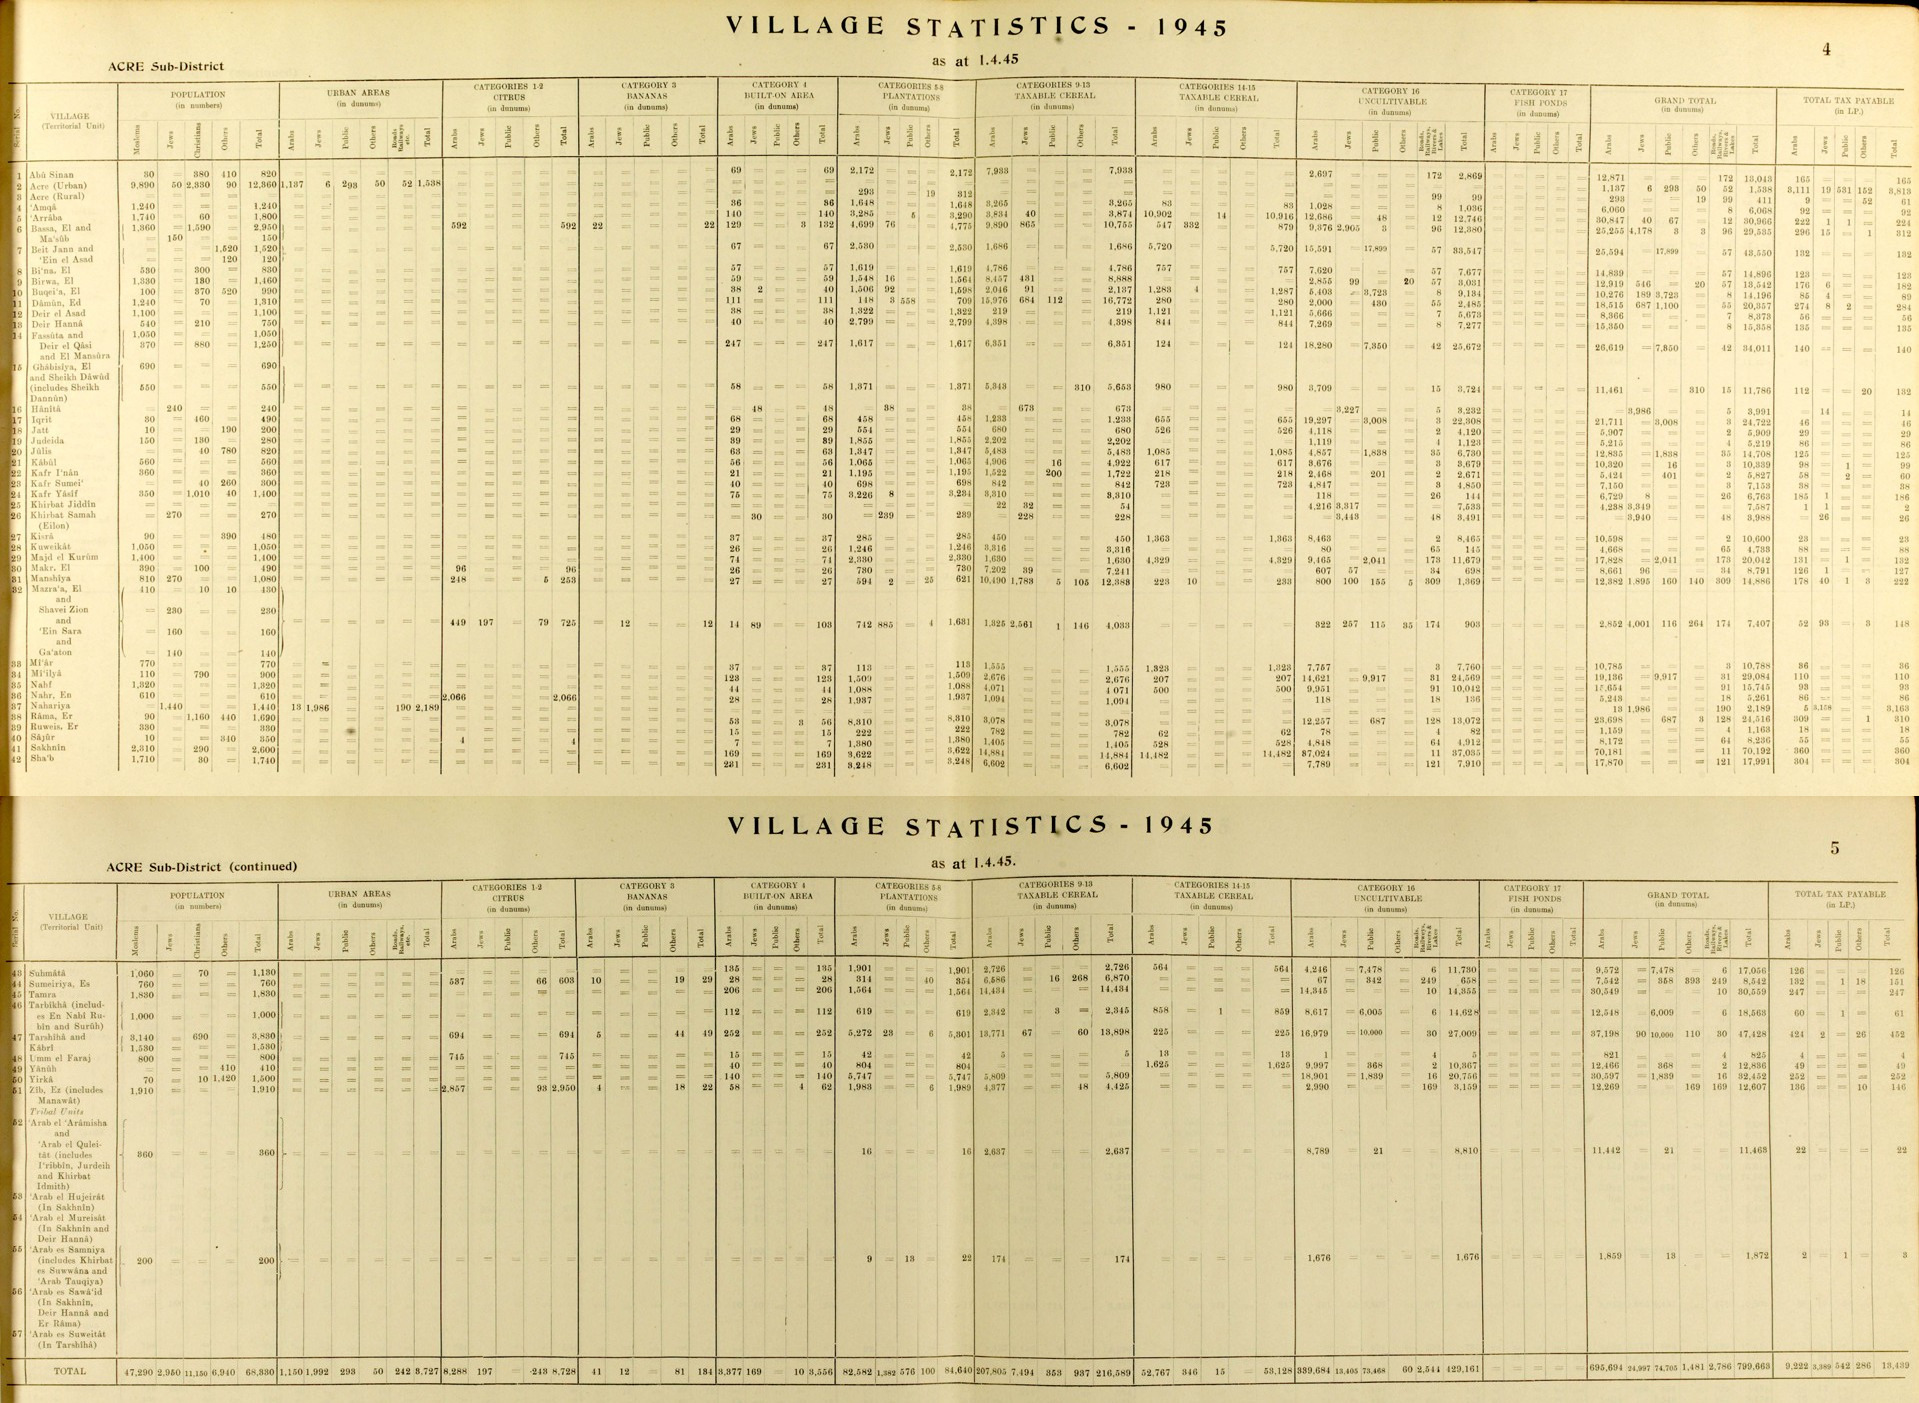 VILLAGE STATISTICS - 1945
4
ACRE Sub-District
as at 1.4.45
Serial No. VILLAGE (Territorial Unit) POPULATION (in numbers) URBAN AREAS (in dunums) CATEGORIES 1-2 CITRUS (in dunums) CATEGORY 3 BANANAS (in dunums) CATEGORY 4 BUILT-ON AREA (in dunums) CATEGORIES 5-8 PLANTATIONS (in dunums) CATEGORIES 9-13 TAXABLE CEREAL (in dunums) CATEGORIES 14-15 TAXABLE CEREAL (in dunums) CATEGORY 16 UNCULTIVABLE (in dunums) CATEGORY 17 FISH PONDS (in dunums) GRAND TOTAL (in dunums) TOTAL TAX PAYABLE (in LP.)
Moslems Jews Christians Others Total Arabs Jews Public Others Roads, Railways etc. Total Arabs Jews Public Others Total Arabs Jews Public Others Total Arabs Jews Public Others Total Arabs Jews Public Others Total Arabs Jews Public Others Total Arabs Jews Public Others Total Arabs Jews Public Others Roads, Railways, Rivers & Lakes Total Arabs Jews Public Others Total Arabs Jews Public Others Roads, Railways, Rivers & Lakes Total Arabs Jews Public Others Total
1 Abû Sinan 30 380 410 820 69 69 2,172 2,172 7,933 7,933 2,697 172 2,869 12,871 172 13,043 165 165
2 Acre (Urban) 9,890 50 2,330 90 12,360 1,137 6 293 50 52 1,538 1,137 6 293 50 52 1,538 3,111 19 531 152 3,813
3 Acre (Rural) 293 19 312 99 99 293 19 99 411 9 52 61
4 'Amqâ 1,240 1,240 36 36 1,648 1,648 3,265 3,265 83 83 1,028 8 1,036 6,060 8 6,068 92 92
5 'Arrâba 1,740 60 1,800 140 140 3,285 5 3,290 3,834 40 3,874 10,902 14 10,916 12,686 48 12 12,746 30,847 40 67 12 30,966 222 1 1 224
6 Bassa, El and 1,360 1,590 2,950 592 592 22 22 129 3 132 4,699 76 4,775 9,890 865 10,755 547 332 879 9,376 2,905 3 96 12,380 25,255 4,178 3 3 96 29,535 296 15 1 312
Ma'sûb 150 150
7 Beit Jann and 1,520 1,520 67 67 2,530 2,530 1,686 1,686 5,720 5,720 15,591 17,899 57 33,547 25,594 17,899 57 43,550 132 132
'Ein el Asad 120 120
8 Bi'na, El 530 300 830 57 57 1,619 1,619 4,786 4,786 757 757 7,620 57 7,677 14,839 57 14,896 123 123
9 Birwa, El 1,330 130 1,460 59 59 1,548 16 1,564 8,457 431 8,888 2,855 99 20 57 3,031 12,919 546 20 57 13,542 176 6 182
10 Buqei'a, El 100 370 520 990 38 2 40 1,506 92 1,598 2,046 91 2,137 1,283 4 1,287 5,403 3,723 8 9,134 10,276 189 3,723 8 14,196 85 4 89
11 Dâmûn, Ed 1,240 70 1,310 111 111 148 3 558 709 15,976 684 112 16,772 280 280 2,000 430 55 2,485 18,515 687 1,100 55 20,357 274 8 2 284
12 Deir el Asad 1,100 1,100 38 38 1,322 1,322 219 219 1,121 1,121 5,666 7 5,673 8,366 7 8,373 56 56
13 Deir Hannâ 540 210 750 40 40 2,799 2,799 4,398 4,398 844 844 7,269 8 7,277 15,350 8 15,358 135 135
14 Fassûta and 1,050 1,050
Deir el Qâsi 370 880 1,250 247 247 1,617 1,617 6,351 6,351 124 124 18,280 7,350 42 25,672 26,619 7,350 42 34,011 140 140
and El Mansûra
15 Ghâbisîya, El 690 690
and Sheikh Dâwûd
(includes Sheikh 550 550 58 58 1,371 1,371 5,343 310 5,653 980 980 3,709 15 3,724 11,461 310 15 11,786 112 20 132
Dannûn)
16 Hânîtâ 240 240 48 48 38 38 673 673 3,227 5 3,232 3,986 5 3,991 14 14
17 Iqrit 30 460 490 68 68 458 458 1,233 1,233 655 655 19,297 3,008 3 22,308 21,711 3,008 3 24,722 46 46
18 Jatt 10 190 200 29 29 554 554 680 680 526 526 4,118 2 4,120 5,907 2 5,909 29 29
19 Judeida 150 130 280 39 39 1,855 1,855 2,202 2,202 1,119 4 1,123 5,215 4 5,219 86 86
20 Jûlis 40 780 820 63 63 1,347 1,347 5,483 5,483 1,085 1,085 4,857 1,838 35 6,730 12,835 1,838 35 14,708 125 125
21 Kâbûl 560 560 56 56 1,065 1,065 4,906 16 4,922 617 617 3,676 3 3,679 10,320 16 3 10,339 98 1 99
22 Kafr I'nân 360 360 21 21 1,195 1,195 1,522 200 1,722 218 218 2,468 201 2 2,671 5,424 401 2 5,827 58 2 60
23 Kafr Sumei' 40 260 300 40 40 698 698 842 842 723 723 4,847 3 4,850 7,150 3 7,153 38 38
24 Kafr Yâsîf 350 1,010 40 1,400 75 75 3,226 8 3,234 3,310 3,310 118 26 144 6,729 8 26 6,763 185 1 186
25 Khirbat Jiddîn 22 32 54 4,216 3,317 7,533 4,238 3,349 7,587 1 1 2
26 Khirbat Samah 270 270 30 30 239 239 228 228 3,443 48 3,491 3,940 48 3,988 26 26
(Eilon)
27 Kisrâ 90 390 480 37 37 285 285 450 450 1,363 1,363 8,463 2 8,465 10,598 2 10,600 23 23
28 Kuweikât 1,050 1,050 26 26 1,246 1,246 3,316 3,316 80 65 145 4,668 65 4,733 88 88
29 Majd el Kurûm 1,400 1,400 74 74 2,330 2,330 1,630 1,630 4,329 4,329 9,465 2,041 173 11,679 17,828 2,041 173 20,042 131 1 132
30 Makr, El 390 100 490 96 96 26 26 730 730 7,202 39 7,241 607 57 34 698 8,661 96 34 8,791 126 1 127
31 Manshîya 810 270 1,080 248 5 253 27 27 594 2 25 621 10,490 1,783 5 105 12,383 223 10 233 800 100 155 5 309 1,369 12,382 1,895 160 140 309 14,886 178 40 1 3 222
32 Mazra'a, El 410 10 10 430
and
Shavei Zion 230 230
and 449 197 79 725 12 12 14 89 103 742 885 4 1,631 1,325 2,561 1 146 4,033 322 257 115 35 174 903 2,852 4,001 116 264 174 7,407 52 93 3 148
'Ein Sara 160 160
and
Ga'aton 140 140
33 Mî'âr 770 770 37 37 113 113 1,555 1,555 1,323 1,323 7,757 3 7,760 10,785 3 10,788 36 36
34 Mi'ilyâ 110 790 900 123 123 1,509 1,509 2,676 2,676 207 207 14,621 9,917 31 24,569 19,136 9,917 31 29,084 110 110
35 Nahf 1,320 1,320 44 44 1,088 1,088 4,071 4,071 500 500 9,951 91 10,042 15,654 91 15,745 93 93
36 Nahr, En 610 610 2,066 2,066 28 28 1,937 1,937 1,094 1,094 118 18 136 5,243 18 5,261 86 86
37 Nahariya 1,440 1,440 13 1,986 190 2,189 13 1,986 190 2,189 5 3,158 3,163
38 Râma, Er 90 1,160 440 1,690 53 3 56 8,310 8,310 3,078 3,078 12,257 687 128 13,072 23,698 687 3 128 24,516 309 1 310
39 Ruweis, Er 330 330 15 15 222 222 782 782 62 62 78 4 82 1,159 4 1,163 18 18
40 Sâjûr 10 340 350 4 4 7 7 1,380 1,380 1,405 1,405 528 528 4,848 64 4,912 8,172 64 8,236 55 55
41 Sakhnîn 2,310 290 2,600 169 169 3,622 3,622 14,884 14,884 14,482 14,482 37,024 11 37,035 70,181 11 70,192 360 360
42 Sha'b 1,710 30 1,740 231 231 3,248 3,248 6,602 6,602 7,789 121 7,910 17,870 121 17,991 304 304
VILLAGE STATISTICS - 1945
5
ACRE Sub-District (continued)
as at 1.4.45.
Serial No. VILLAGE (Territorial Unit) POPULATION (in numbers) URBAN AREAS (in dunums) CATEGORIES 1-2 CITRUS (in dunums) CATEGORY 3 BANANAS (in dunums) CATEGORY 4 BUILT-ON AREA (in dunums) CATEGORIES 5-8 PLANTATIONS (in dunums) CATEGORIES 9-13 TAXABLE CEREAL (in dunums) CATEGORIES 14-15 TAXABLE CEREAL (in dunums) CATEGORY 16 UNCULTIVABLE (in dunums) CATEGORY 17 FISH PONDS (in dunums) GRAND TOTAL (in dunums) TOTAL TAX PAYABLE (in LP.)
Moslems Jews Christians Others Total Arabs Jews Public Others Roads, Railways, etc. Total Arabs Jews Public Others Total Arabs Jews Public Others Total Arabs Jews Public Others Total Arabs Jews Public Others Total Arabs Jews Public Others Total Arabs Jews Public Others Total Arabs Jews Public Others Roads, Railways, Rivers & Lakes Total Arabs Jews Public Others Total Arabs Jews Public Others Roads, Railways, Rivers & Lakes Total Arabs Jews Public Others Total
43 Suhmâtâ 1,060 70 1,130 135 135 1,901 1,901 2,726 2,726 564 564 4,246 7,478 6 11,730 9,572 7,478 6 17,056 126 126
44 Sumeiriya, Es 760 760 537 66 603 10 19 29 28 28 314 40 354 6,586 16 268 6,870 67 342 249 658 7,542 358 393 249 8,542 132 1 18 151
45 Tamra 1,830 1,830 206 206 1,564 1,564 14,434 14,434 14,345 10 14,355 30,549 10 30,559 247 247
46 Tarbîkhâ (includ-
es En Nabî Ru- 1,000 1,000 112 112 619 619 2,342 3 2,345 858 1 859 8,617 6,005 6 14,628 12,548 6,009 6 18,563 60 1 61
bîn and Surûh)
47 Tarshîhâ and 3,140 690 3,830 694 694 5 44 49 252 252 5,272 23 6 5,301 13,771 67 60 13,898 225 225 16,979 10,000 30 27,009 37,198 90 10,000 110 30 47,428 424 2 26 452
Kâbrî 1,530 1,530
48 Umm el Faraj 800 800 745 745 15 15 42 42 5 5 13 13 1 4 5 821 4 825 4 4
49 Yânûh 410 410 40 40 804 804 1,625 1,625 9,997 368 2 10,367 12,466 368 2 12,836 49 49
50 Yirkâ 70 10 1,420 1,500 140 140 5,747 5,747 5,809 5,809 18,901 1,839 16 20,756 30,597 1,839 16 32,452 252 252
51 Zîb, Ez (includes 1,910 1,910 2,857 93 2,950 4 18 22 58 4 62 1,983 6 1,989 4,377 48 4,425 2,990 169 3,159 12,269 169 169 12,607 136 10 146
Manawât)
Tribal Units
52 'Arab el 'Arâmisha
and
'Arab el Qulei-
tât (includes 360 360 16 16 2,637 2,637 8,789 21 8,810 11,442 21 11,463 22 22
I'ribbîn, Jurdeih
and Khirbat
Idmith)
53 'Arab el Hujeirât
(In Sakhnîn)
54 'Arab el Mureisât
(In Sakhnîn and
Deir Hannâ)
55 'Arab es Samniya
(includes Khirbat 200 200 9 13 22 174 174 1,676 1,676 1,859 13 1,872 2 1 3
es Suwwâna and
'Arab Tauqiya)
56 'Arab es Sawâ'id
(In Sakhnîn,
Deir Hannâ and
Er Râma)
57 'Arab es Suweitât
(In Tarshîhâ)
TOTAL 47,290 2,950 11,150 6,940 68,330 1,150 1,992 293 50 242 3,727 8,288 197 243 8,728 41 12 81 134 3,377 169 10 3,556 82,582 1,382 576 100 84,640 207,805 7,494 353 937 216,589 52,767 346 15 53,128 339,684 13,405 73,468 60 2,544 429,161 695,694 24,997 74,705 1,481 2,786 799,663 9,222 3,389 542 286 13,439